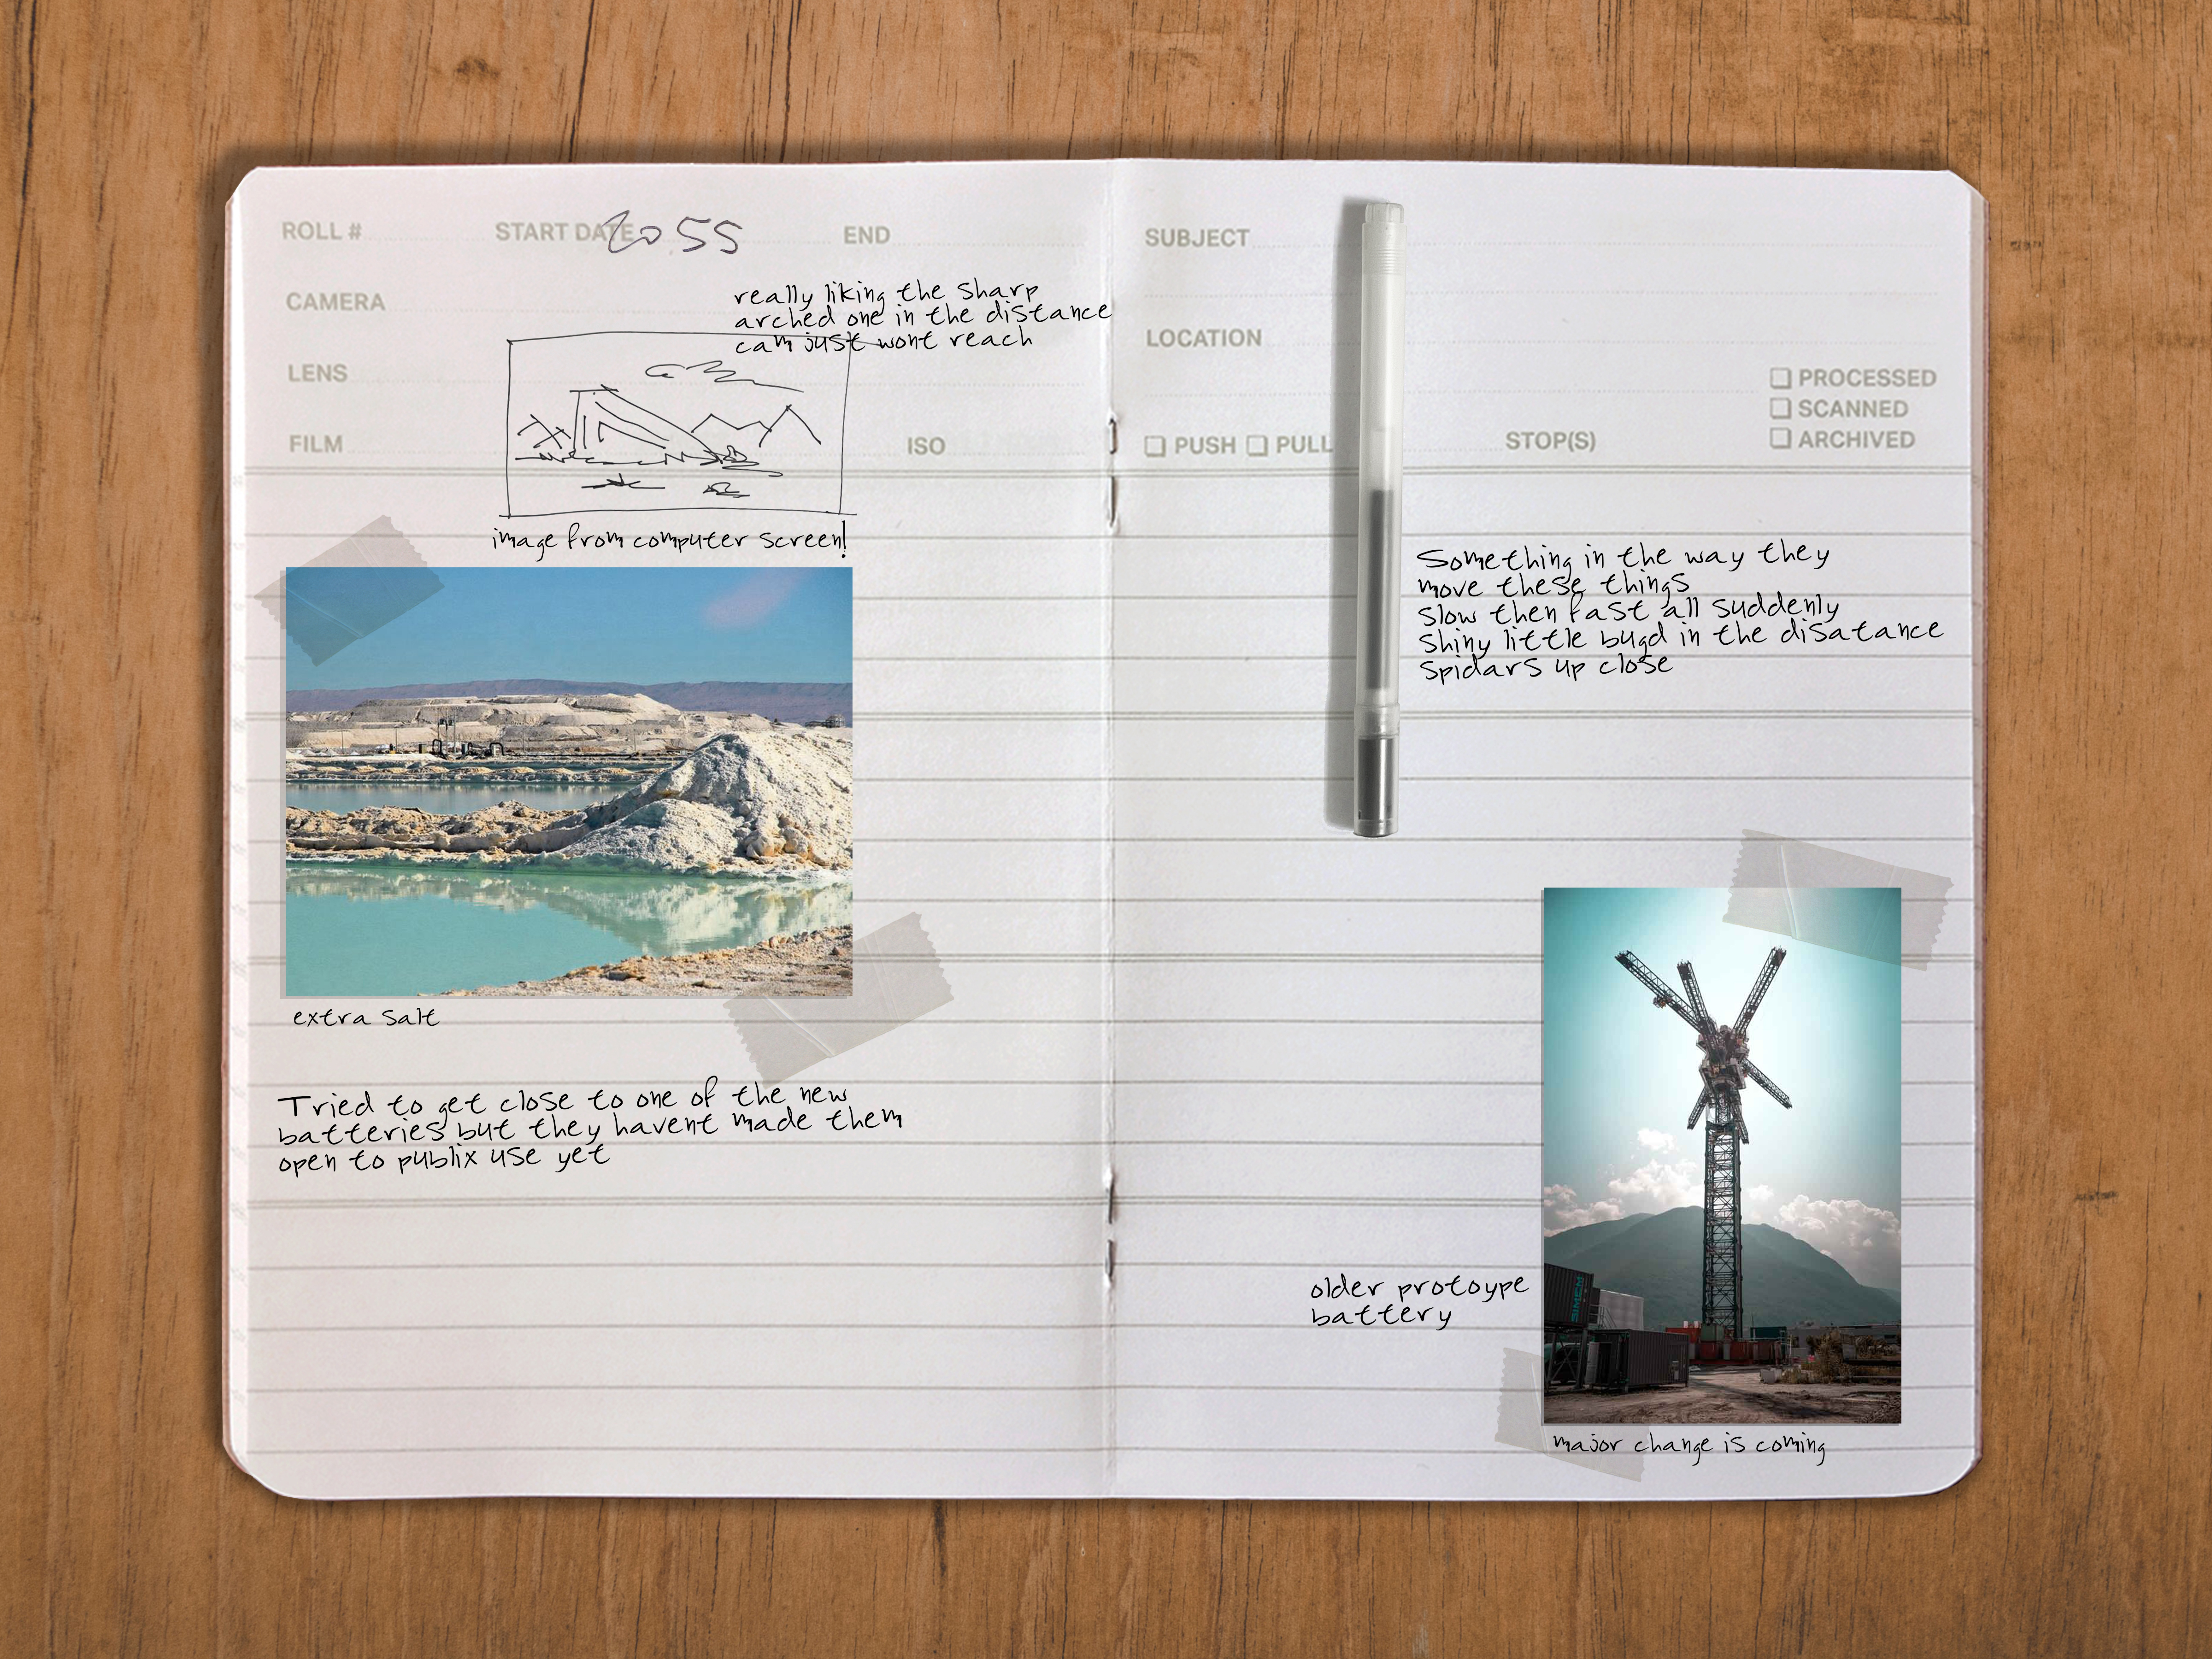 ROLL #
START DATE 2055
END
CAMERA
LENS
FILM
ISO
really liking the sharp
arched one in the distance
cam just wont reach
image from computer screen!
extra salt
Tried to get close to one of the new
batteries but they havent made them
open to publix use yet
SUBJECT
LOCATION
PROCESSED
SCANNED
ARCHIVED
PUSH PULL
STOP(S)
Something in the way they
move these things
slow then fast all suddenly
shiny little bugd in the disatance
spidars up close
older protoype
battery
major change is coming